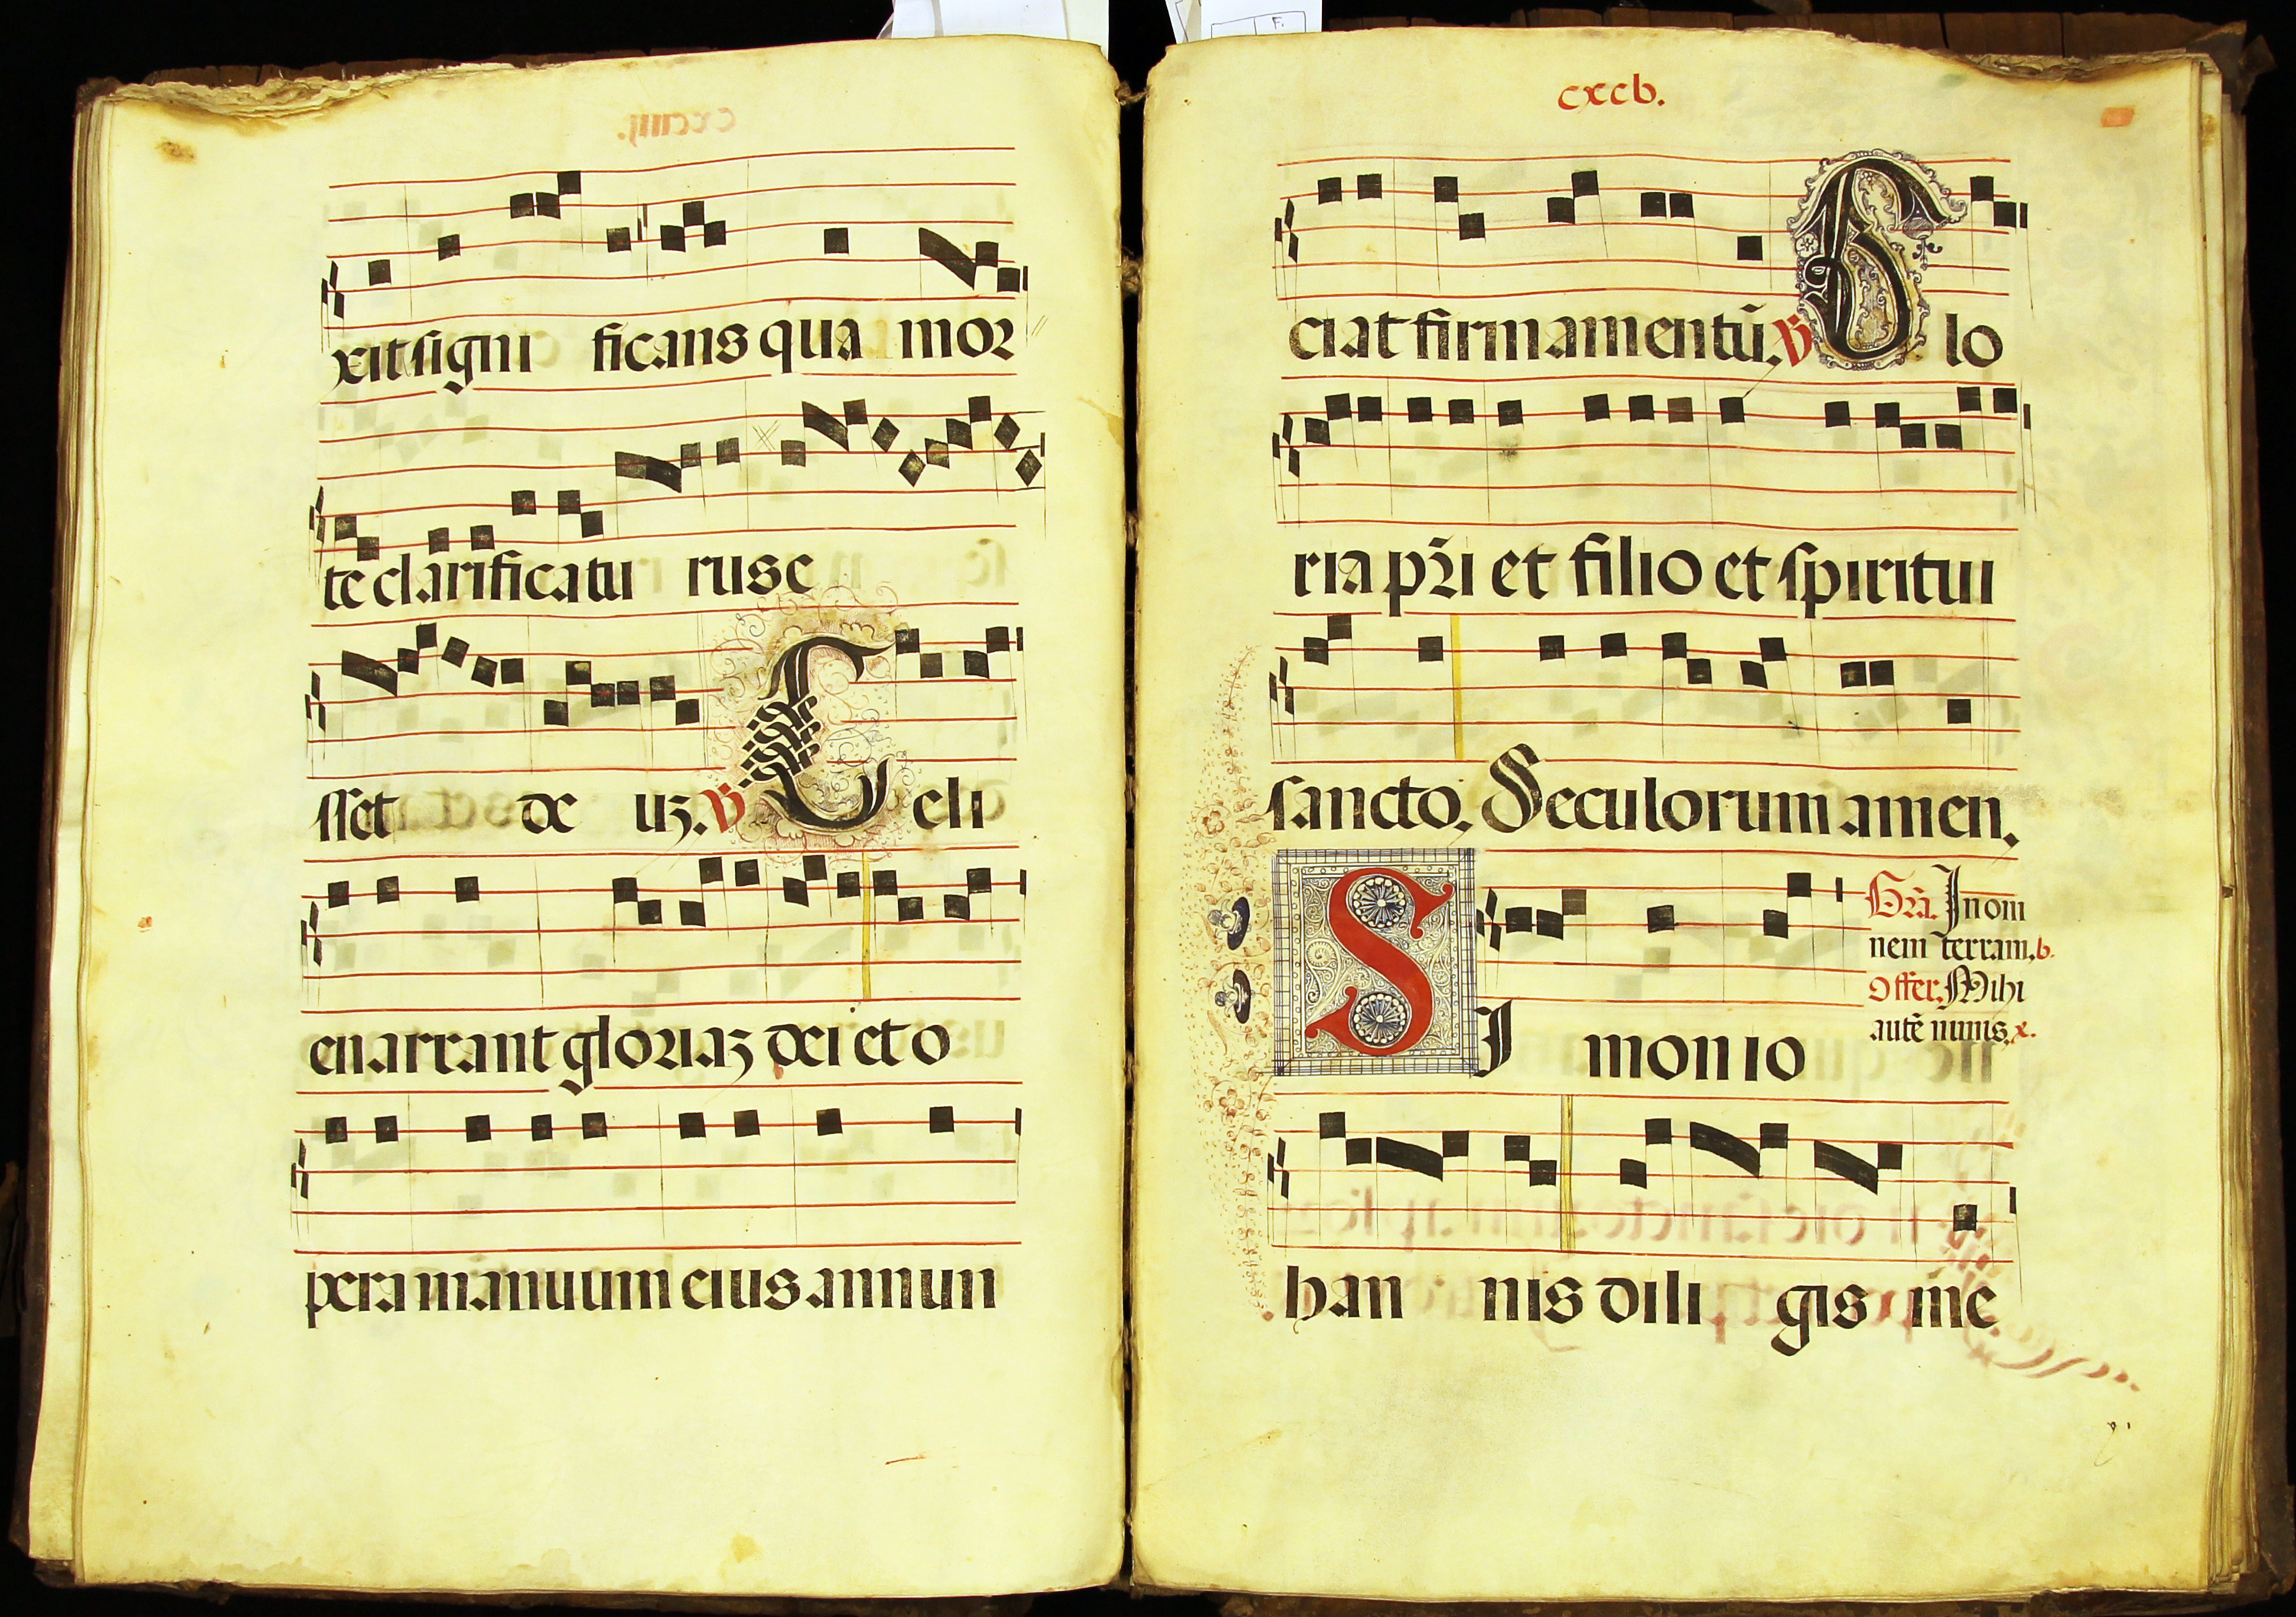 xit signi ficans qua mor
te clarificatu rus e
sset de uz. V Celi
enarrant gloriaz dei et o
pera manuum eius annun
cxcb.
ciat firmamentū. V Glo
ria pr̄i et filio et spiritui
sancto. Seculorum amen.
Grā. In om
nem terram. b.
Offer. Mihi
autē nimis. x.
SI monio
han nis dili gis me
F.